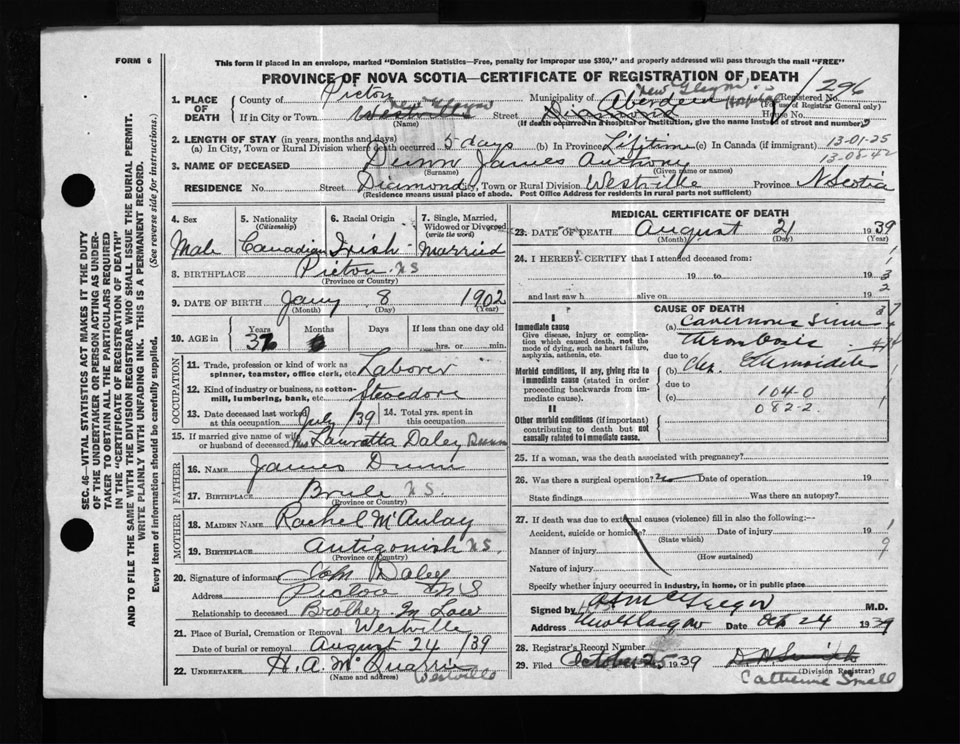 FORM 6
This form if placed in an envelope, marked "Dominion Statistics—Free, penalty for improper use $300," and properly addressed will pass through the mail "FREE"
PROVINCE OF NOVA SCOTIA—CERTIFICATE OF REGISTRATION OF DEATH
296
1. PLACE OF DEATH
County of Pictou
Municipality of New Glasgow
Registered No.
(For use of Registrar General only)
If in City or Town New Glasgow Westville
(Name)
Street Aberdeen Hospital Diamond House No.
(If death occurred in a hospital or institution, give the name instead of street and number)
2. LENGTH OF STAY (in years, months and days)
(a) In City, Town or Rural Division where death occurred 5 days (b) In Province Lifetime (c) In Canada (if immigrant)
13-01-25
13-08-42
3. NAME OF DECEASED Dunn James Anthony
(Surname) (Given name or names)
RESIDENCE No. Street Diamond City, Town or Rural Division Westville Province N Scotia
(Residence means usual place of abode. Post Office Address for residents in rural parts not sufficient)
4. Sex
Male
5. Nationality
(Citizenship)
Canadian
6. Racial Origin
Irish
7. Single, Married, Widowed or Divorced
(write the word)
Married
8. BIRTHPLACE Pictou N S
(Province or Country)
9. DATE OF BIRTH Jany 8 1902
(Month) (Day) (Year)
10. AGE in
Years
37
Months
Days
If less than one day old
hrs. or min.
OCCUPATION
11. Trade, profession or kind of work as spinner, teamster, office clerk, etc. Laborer
12. Kind of industry or business, as cotton-mill, lumbering, bank, etc. Stevedore
13. Date deceased last worked at this occupation July /39
14. Total yrs. spent in this occupation
15. If married give name of wife or husband of deceased Mrs Lauratta Daley Dunn
FATHER
16. NAME James Dunn
17. BIRTHPLACE Brule N S.
(Province or Country)
MOTHER
18. MAIDEN NAME Rachel McAulay
19. BIRTHPLACE Antigonish N S.
(Province or Country)
20. Signature of informant John Daley
Address Pictou N S
Relationship to deceased Brother In Law
21. Place of Burial, Cremation or Removal Westville
Date of burial or removal August 24 /39
22. UNDERTAKER H. A. McQuarrie
(Name and address)
Westville
MEDICAL CERTIFICATE OF DEATH
23. DATE OF DEATH August 21 1939
(Month) (Day) (Year)
24. I HEREBY CERTIFY that I attended deceased from:
19 to 19
and last saw h alive on 19
CAUSE OF DEATH
I
Immediate cause
Give disease, injury or complication which caused death, not the mode of dying, such as heart failure, asphyxia, asthenia, etc.
(a) Cavernous Sinus
Thrombosis
due to
Morbid conditions, if any, giving rise to immediate cause (stated in order proceeding backwards from immediate cause).
(b) Ethmoiditis
due to
(c) 104-0
082-2
II
Other morbid conditions (if important) contributing to death but not causally related to immediate cause.
25. If a woman, was the death associated with pregnancy?
26. Was there a surgical operation? no Date of operation 19
State findings Was there an autopsy?
27. If death was due to external causes (violence) fill in also the following:—
Accident, suicide or homicide? Date of injury 19
(State which)
Manner of injury
(How sustained)
Nature of injury
Specify whether injury occurred in industry, in home, or in public place
Signed by M.D.
Address New Glasgow Date 24 1939
28. Registrar's Record Number
29. Filed October 25 1939
(Division Registrar)
Catherine Small
SEC. 46—VITAL STATISTICS ACT MAKES IT THE DUTY
OF THE UNDERTAKER OR PERSON ACTING AS UNDER-
TAKER TO OBTAIN ALL THE PARTICULARS REQUIRED
IN THE "CERTIFICATE OF REGISTRATION OF DEATH"
AND TO FILE THE SAME WITH THE DIVISION REGISTRAR WHO SHALL ISSUE THE BURIAL PERMIT.
WRITE PLAINLY WITH UNFADING INK. THIS IS A PERMANENT RECORD.
Every item of information should be carefully supplied. (See reverse side for instructions.)